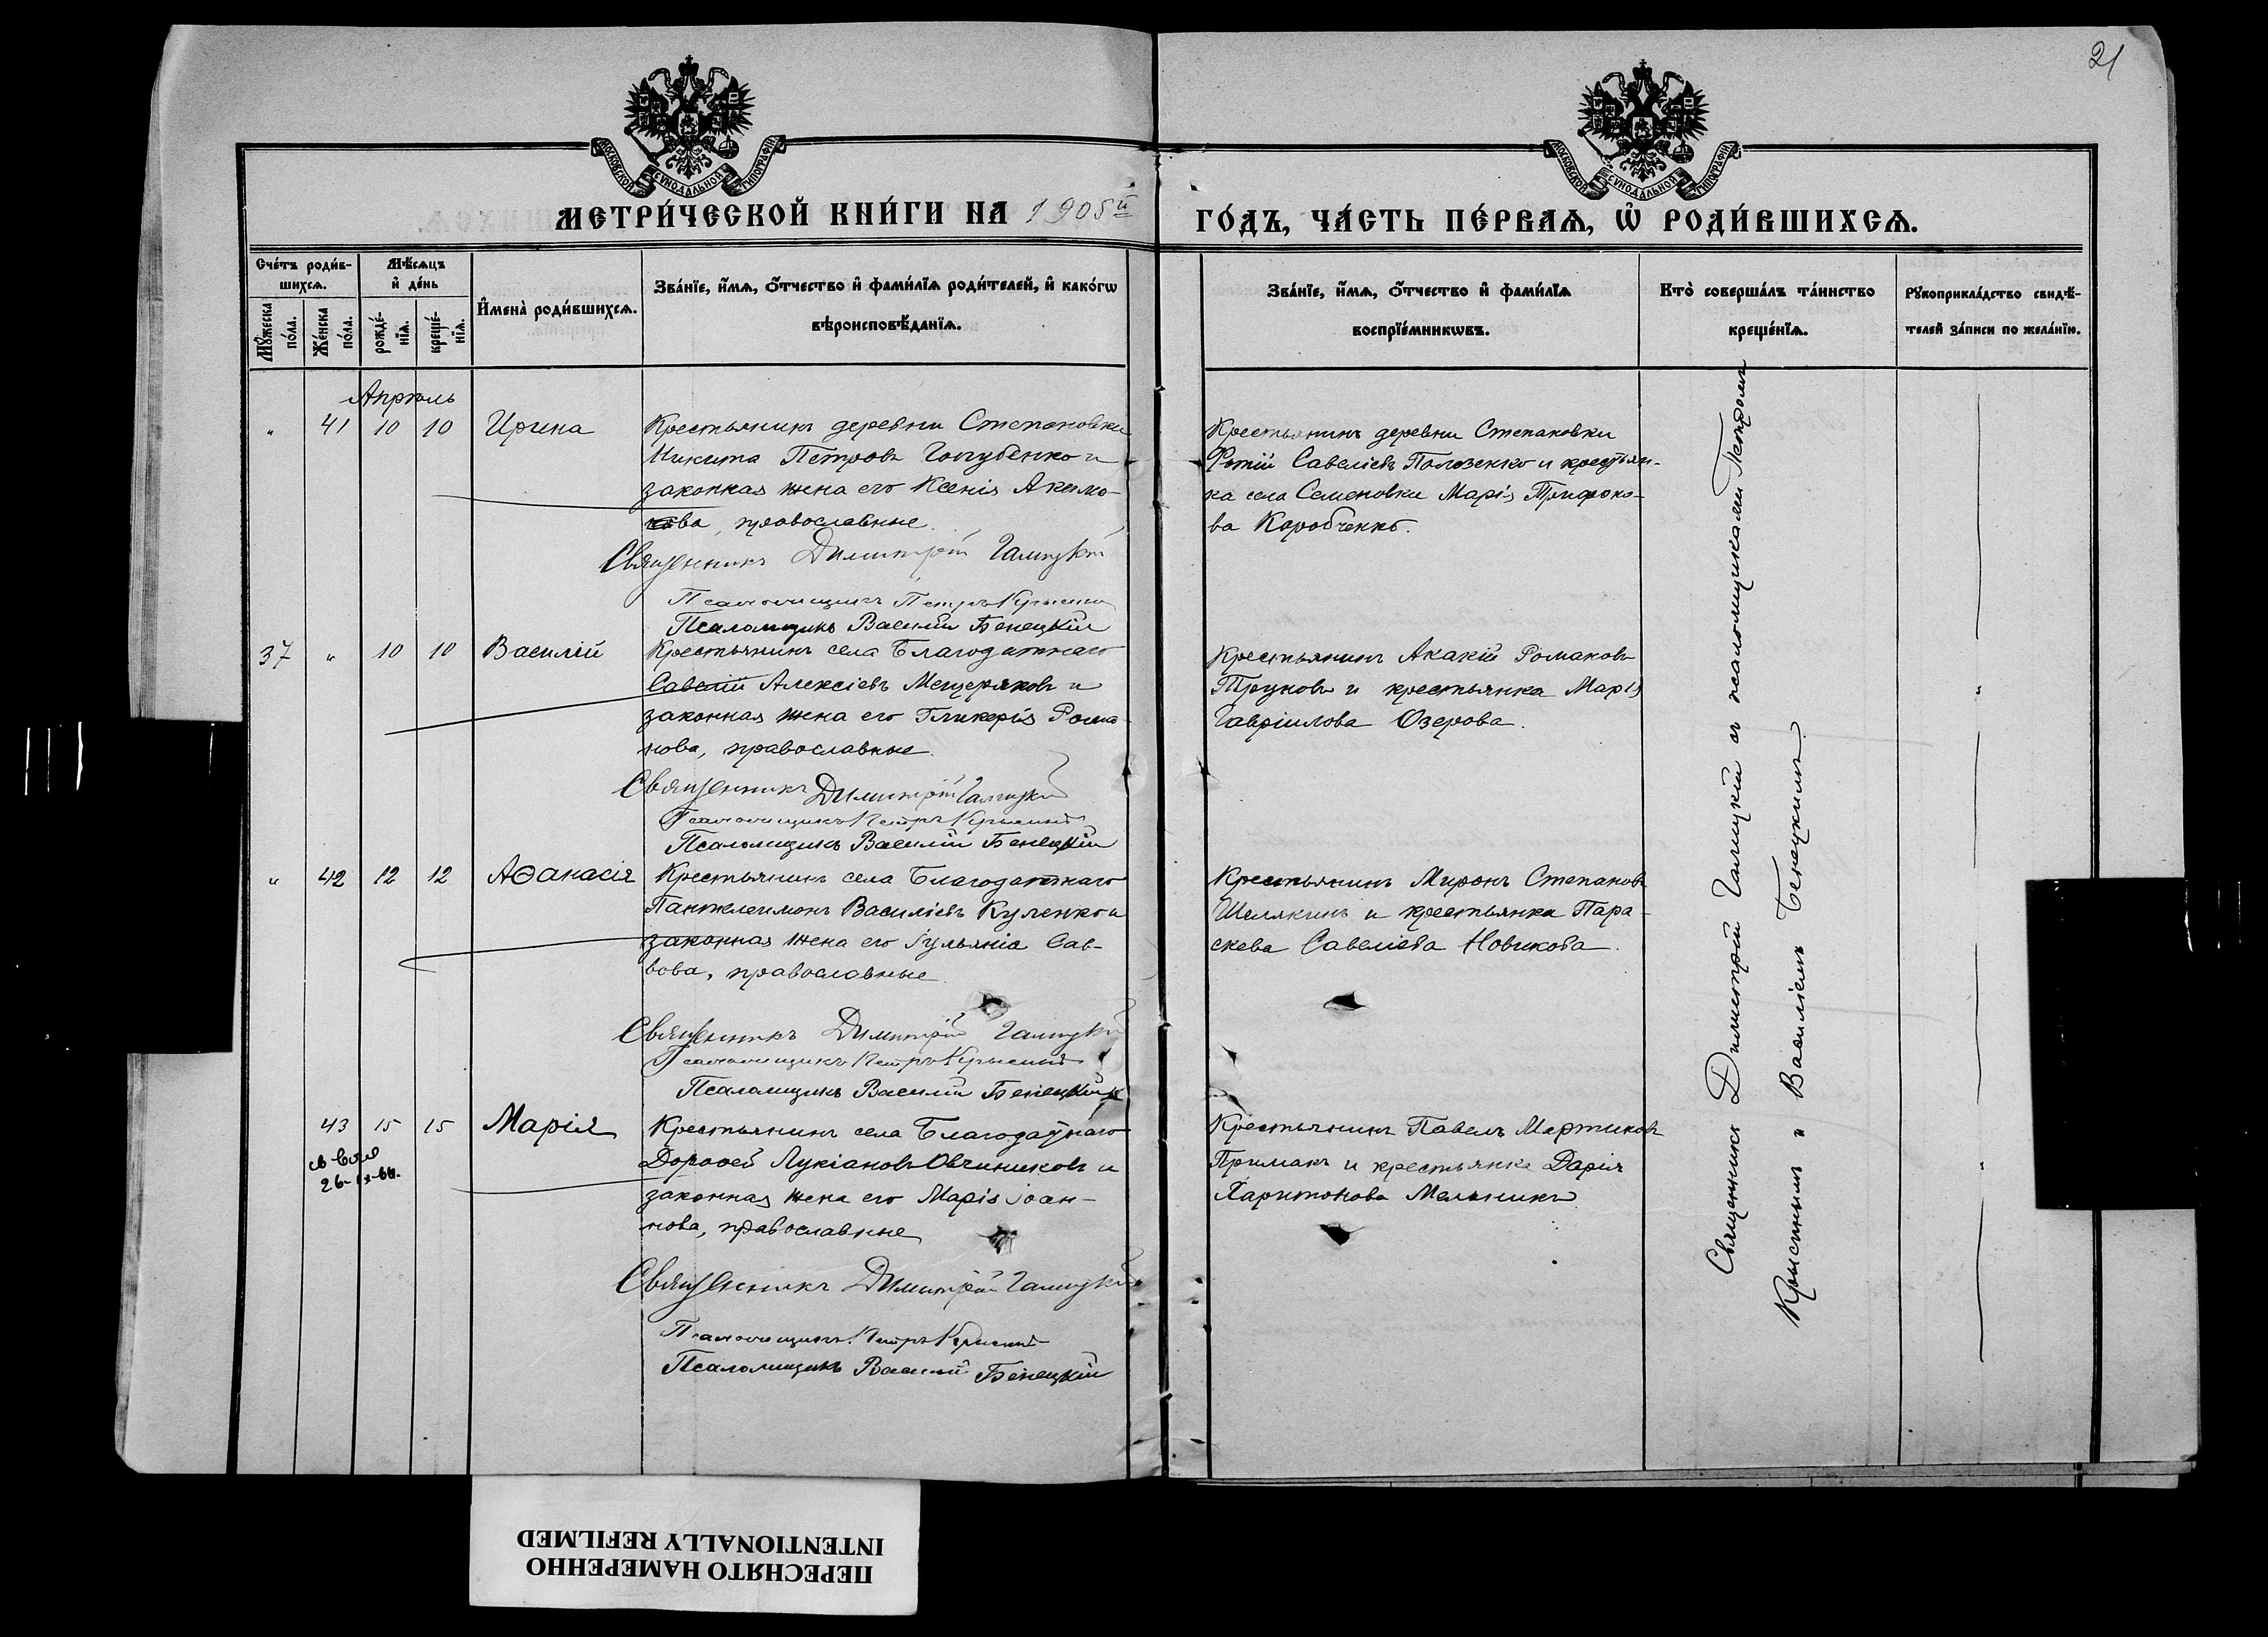 21
МОСКОВСКОЙ СѴНОДАЛЬНОЙ ТИПОГРАФІИ
МОСКОВСКОЙ СѴНОДАЛЬНОЙ ТИПОГРАФІИ
МЕТРИ́ЧЕСКОЙ КНИ́ГИ НА 1905й
ГО́ДЪ, ЧА́СТЬ ПЕ́РВАѦ, Ѡ҆ РОДИ́ВШИХСѦ.
Сче́тъ роди́в-
шихсѧ.
Мꙋ́жеска
по́ла.
Же́нска
по́ла.
Мѣ́сѧцъ
и҆ де́нь
рожде́-
нїѧ.
креще́-
нїѧ.
И҆мена̀ роди́вшихсѧ.
Зва́нїе, и҆́мѧ, ѻ҆́тчество и҆ фами́лїѧ роди́телей, и҆ како́гѡ
вѣроисповѣ́данїѧ.
Зва́нїе, и҆́мѧ, ѻ҆́тчество и҆ фами́лїѧ
воспрїе́мникѡвъ.
Кто̀ соверша́лъ та́инство
креще́нїѧ.
Рꙋкоприкла́дство свидѣ́-
телей за́писи по жела́нїю.
Апрѣль
" 41 10 10 Ирина
Крестьянинъ деревни Степановки
Никита Петровъ Голубенко и
законная жена его Ксенія Акимо-
ва, православные.
Священникъ Димитрій Галицкій
Псаломщикъ Петръ Крысинъ
Псаломщикъ Василій Бенецкій
Крестьянинъ деревни Степановки
Фотій Савеліевъ Полозенко и крестьян-
ка села Семеновки Марія Трифоно-
ва Коробченко.
37 " 10 10 Василій
Крестьянинъ села Благодатнаго
Савелій Алексіевъ Мещеряковъ и
законная жена его Гликерія Рома-
нова, православные.
Священникъ Димитрій Галицкій
Псаломщикъ Петръ Крысинъ
Псаломщикъ Василій Бенецкій
Крестьянинъ Акакій Романовъ
Труновъ и крестьянка Марія
Гавріилова Озерова.
" 42 12 12 Аѳанасія
Крестьянинъ села Благодатнаго
Пантелеимонъ Василіевъ Куленко и
законная жена его Іульянія Сав-
вова, православные.
Священникъ Димитрій Галицкій
Псаломщикъ Петръ Крысинъ
Псаломщикъ Василій Бенецкій
Крестьянинъ Миронъ Степановъ
Шелякинъ и крестьянка Пара-
скева Савеліева Новикова.
43 15 15 Марія
26-IX-66.
Крестьянинъ села Благодатнаго
Дороѳей Лукіановъ Овчинниковъ и
законная жена его Марія Іоан-
нова, православные
Священникъ Димитрій Галицкій
Псаломщикъ Петръ Крысинъ
Псаломщикъ Василій Бенецкій
Крестьянинъ Павелъ Мартиновъ
Примакъ и крестьянка Дарія
Харитонова Мельникъ.
Священникъ Димитрій Галицкій съ псаломщиками Петромъ
Крысинымъ и Василіемъ Бенецкимъ.
ПЕРЕСНЯТО НАМЕРЕННО
INTENTIONALLY REFILMED